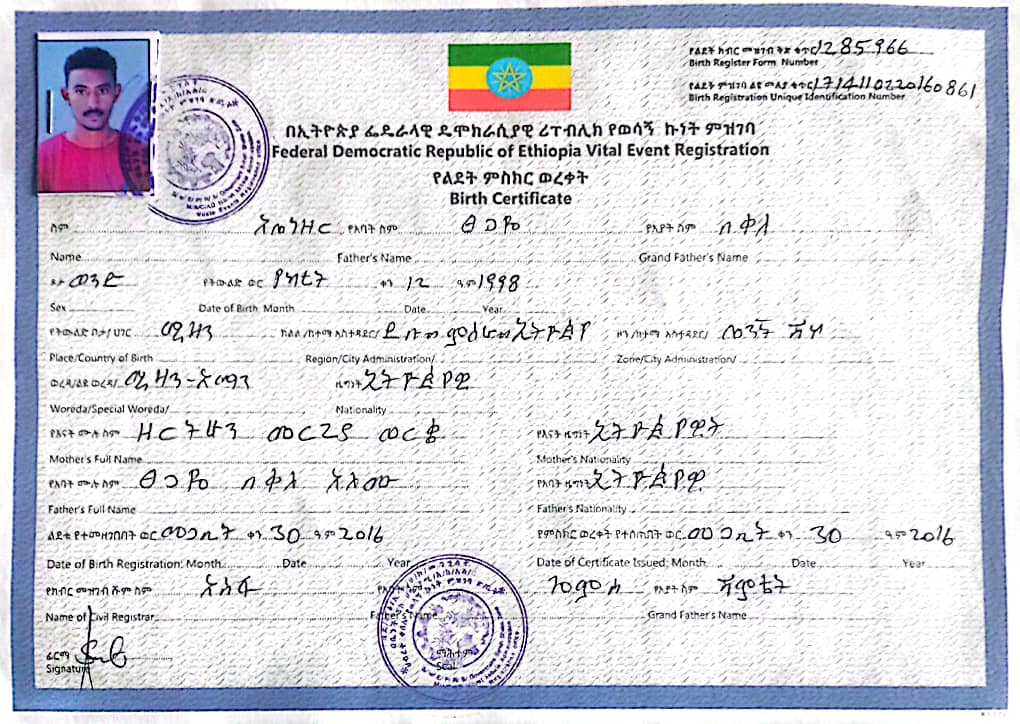 የልደት ክብር መዝገብ ቅጽ ቁጥር 1285966
Birth Register Form Number
የልደት ምዝገባ ልዩ መለያ ቁጥር 17141102201608 61
Birth Registration Unique Identification Number
በኢትዮጵያ ፌዴራላዊ ዴሞክራሲያዊ ሪፐብሊክ የወሳኝ ኩነት ምዝገባ
Federal Democratic Republic of Ethiopia Vital Event Registration
የልደት ምስክር ወረቀት
Birth Certificate
ስም የአባት ስም ፀጋዬ የአያት ስም በቀለ
Name Father's Name Grand Father's Name
ፆታ ወንድ የትውልድ ወር የካቲት ቀን 12 ዓ.ም 1998
Sex Date of Birth Month Date Year
የትውልድ ቦታ/ ሀገር ሚዛን ክልል/ከተማ አስተዳደር/ ኢትዮጵያ ዞን/ከተማ አስተዳደር/ ቤንች ሸኮ
Place/Country of Birth Region/City Administration/ Zone/City Administration/
ወረዳ/ልዩ ወረዳ/ ሚዛን-አማን ዜግነት ኢትዮጵያዊ
Woreda/Special Woreda/ Nationality
የእናት ሙሉ ስም የእናት ዜግነት ኢትዮጵያዊት
Mother's Full Name Mother's Nationality
የአባት ሙሉ ስም ፀጋዬ በቀለ የአባት ዜግነት ኢትዮጵያዊ
Father's Full Name Father's Nationality
ልደቱ የተመዘገበበት ወር መጋቢት ቀን 30 ዓ.ም 2016 የምስክር ወረቀት የተሰጠበት ወር መጋቢት ቀን 30 ዓ.ም 2016
Date of Birth Registration: Month Date Year Date of Certificate Issued: Month Date Year
የክብር መዝገብ ሹም ስም አሰፋ የአያት ስም
Name of Civil Registrar Father's Name Grand Father's Name
ፊርማ ማኅተም
Signature Seal